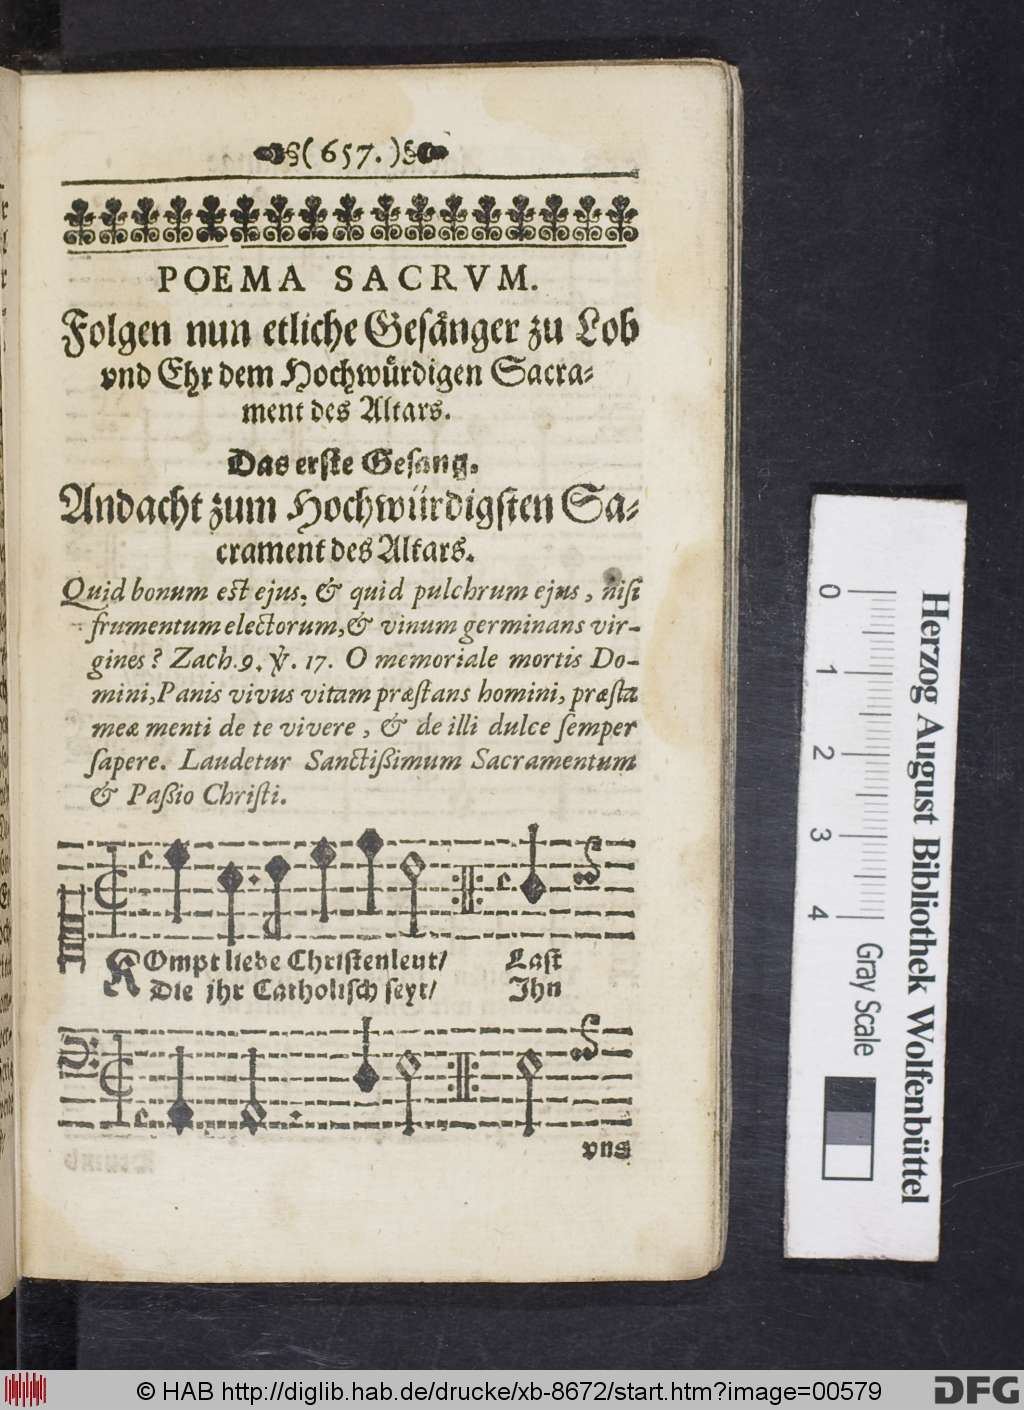 (657.)
POEMA SACRVM.
Folgen nun etliche Gesånger zu Lob
vnd Ehr dem Hochwůrdigen Sacra=
ment des Altars.
Das erste Gesang.
Andacht zum Hochwürdigsten Sa=
crament des Altars.
Quid bonum est ejus, & quid pulchrum ejus, nisi
frumentum electorum, & vinum germinans vir-
gines? Zach. 9. ℣. 17. O memoriale mortis Do-
mini, Panis vivus vitam præstans homini, præsta
meæ menti de te vivere, & de illi dulce semper
sapere. Laudetur Sanctißimum Sacramentum
& Paßio Christi.
KOmpt liebe Christenleut/ Last
Die jhr Catholisch seyt/ Jhn
vns
0 1 2 3 4
Gray Scale
Herzog August Bibliothek Wolfenbüttel
© HAB http://diglib.hab.de/drucke/xb-8672/start.htm?image=00579
DFG